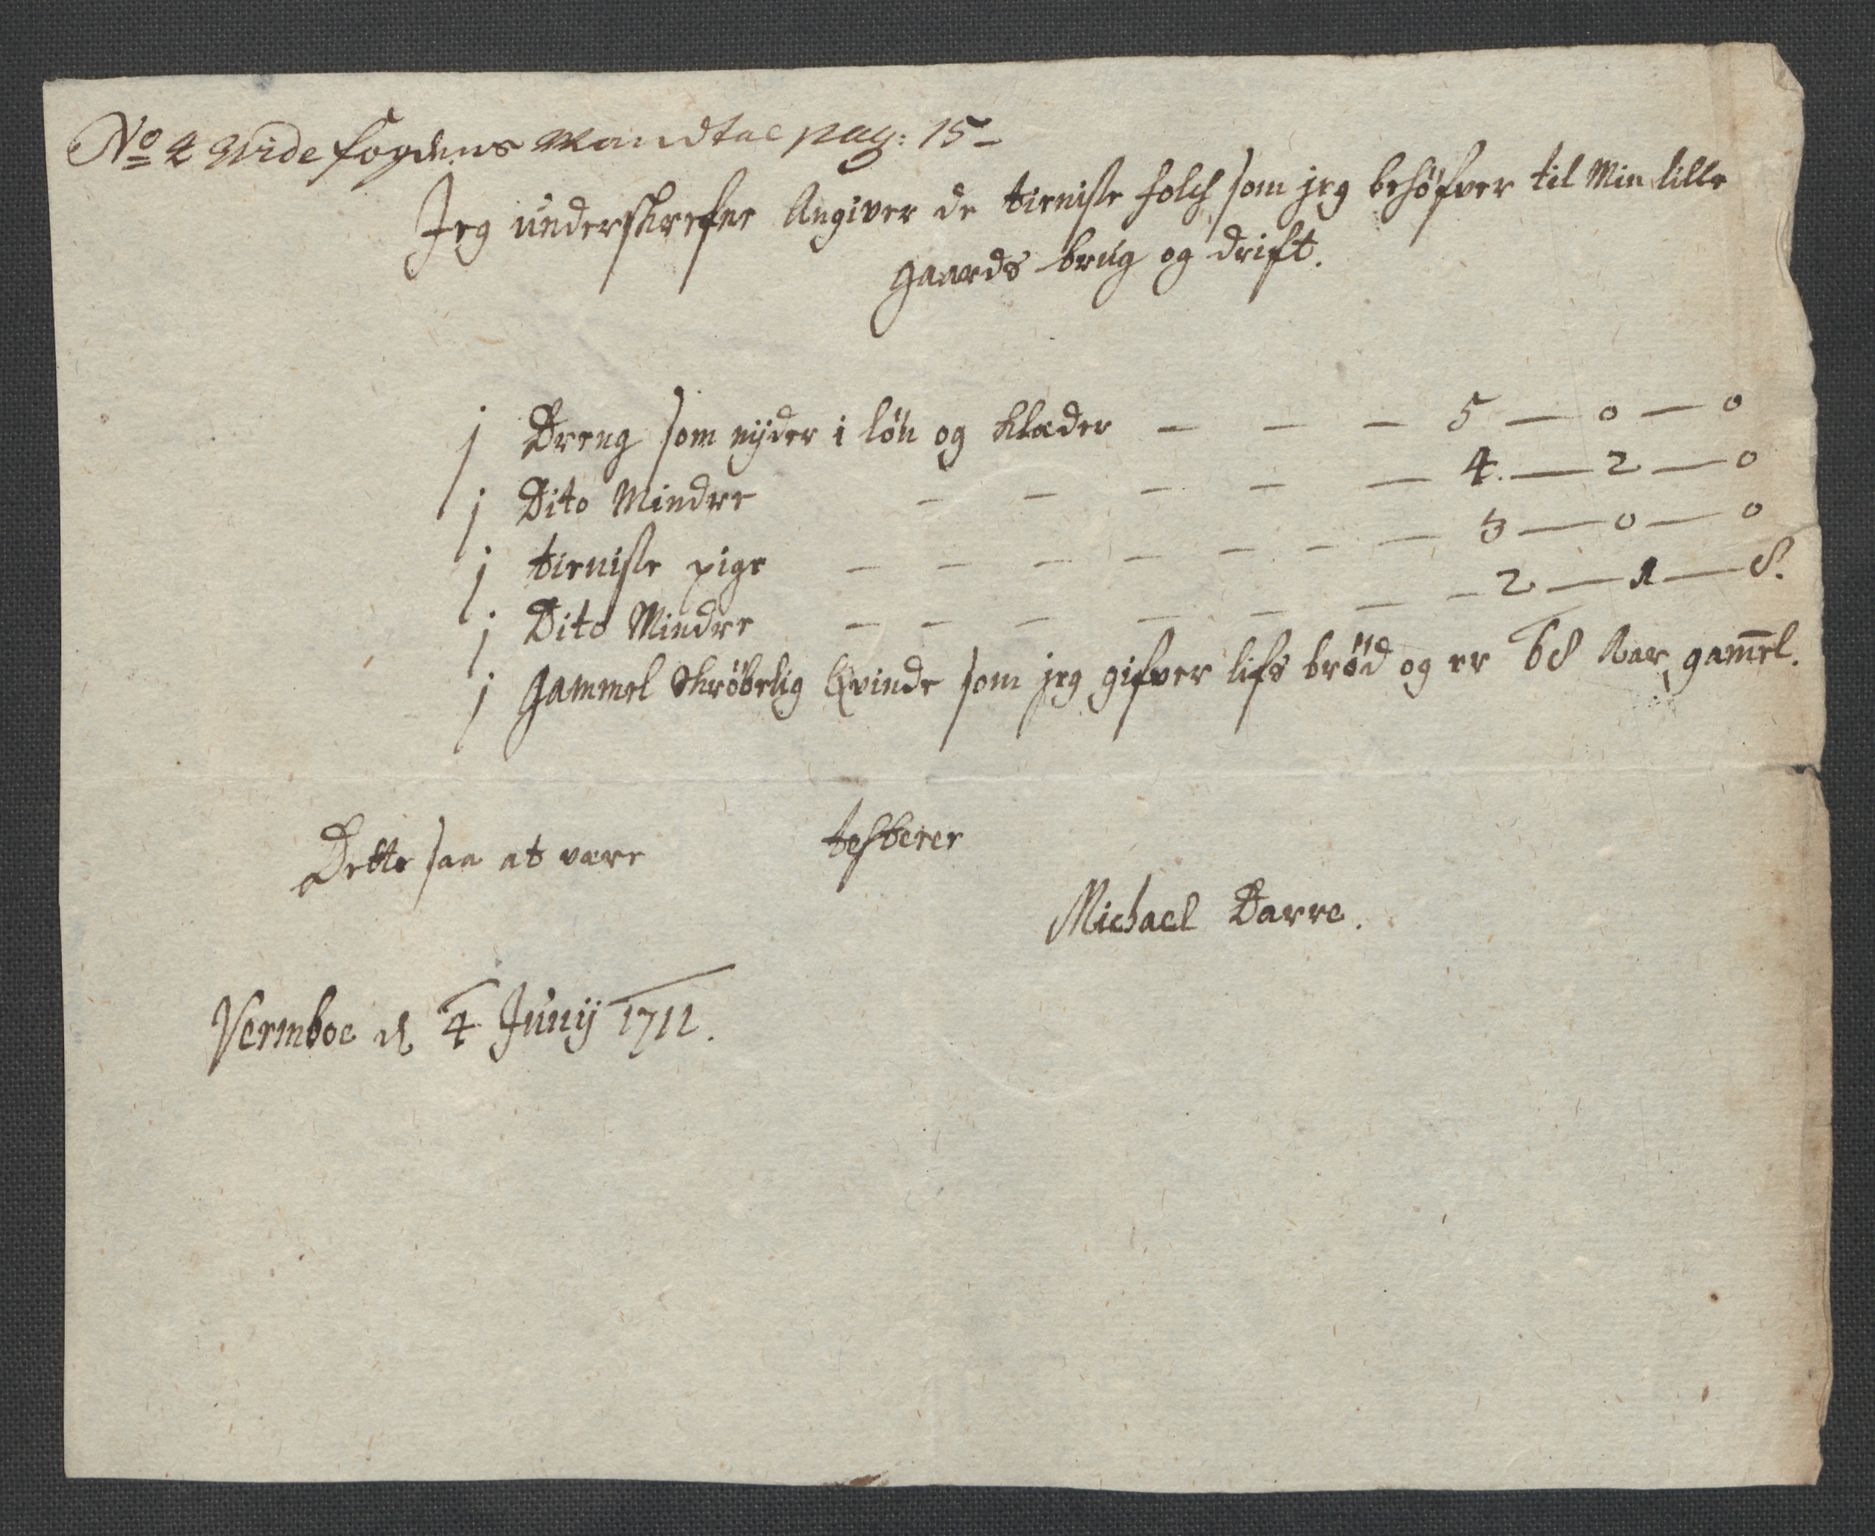 No 4 Vide fogdens Mandtal pag: 15 -
Jeg underskrefne Angiver de tieniste folch som jeg behøfver til Min lille
gaards brug og drift.
1 Dreng som nyder i løn og klæder — — — 5 — 0 — 0
1 Dito Mindre — — — — — 4. — 2 — 0
1 tieniste pige — — — — — — — 3 — 0 — 0
1 Dito Mindre — — — — — — — 2 — 1 — 8.
1 gammel skrøbelig Qvinde som jeg gifver lifs brød og er 68 Aar gam̅el.
Dette saa at være testerer
Michael Darre.
Vermboe d 4 Junij 1711.